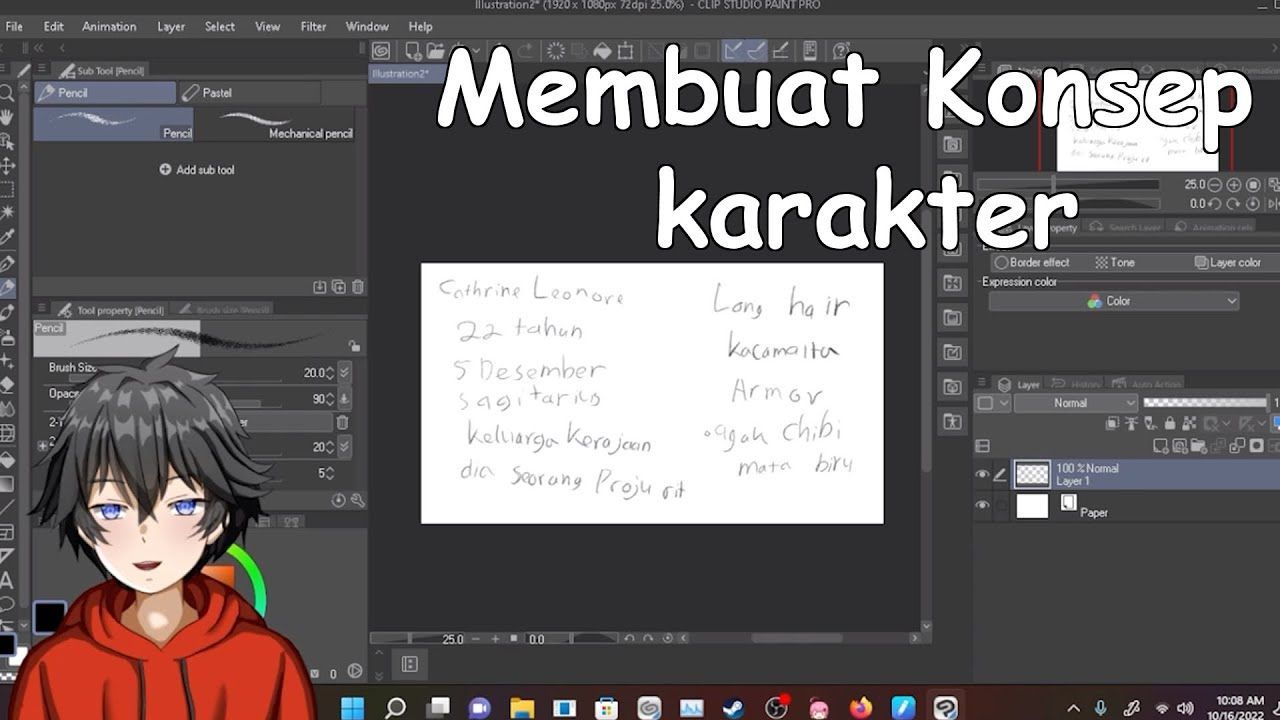 Illustration2* (1920 x 1080px 72dpi 25.0%) - CLIP STUDIO PAINT PRO
File Edit Animation Layer Select View Filter Window Help
Membuat Konsep
karakter
Sub Tool [Pencil]
Pencil Pastel
Pencil
Mechanical pencil
Add sub tool
Illustration2*
Tool property [Pencil] Brush size [Pencil]
Pencil
Brush Size 20.0
90
20
5
Cathrine Leonore
22 tahun
5 Desember
Sagitarius
Keluarga Kerajaan
dia seorang Prajurit
Long hair
kacamata
Armor
agak chibi
mata biru
25.0
0.0
Search Layer Animation cels
Border effect Tone Layer color
Expression color
Color
Layer History Auto Action
Normal
100 % Normal
Layer 1
Paper
25.0 0.0
0
10:08 AM
10/16/2022